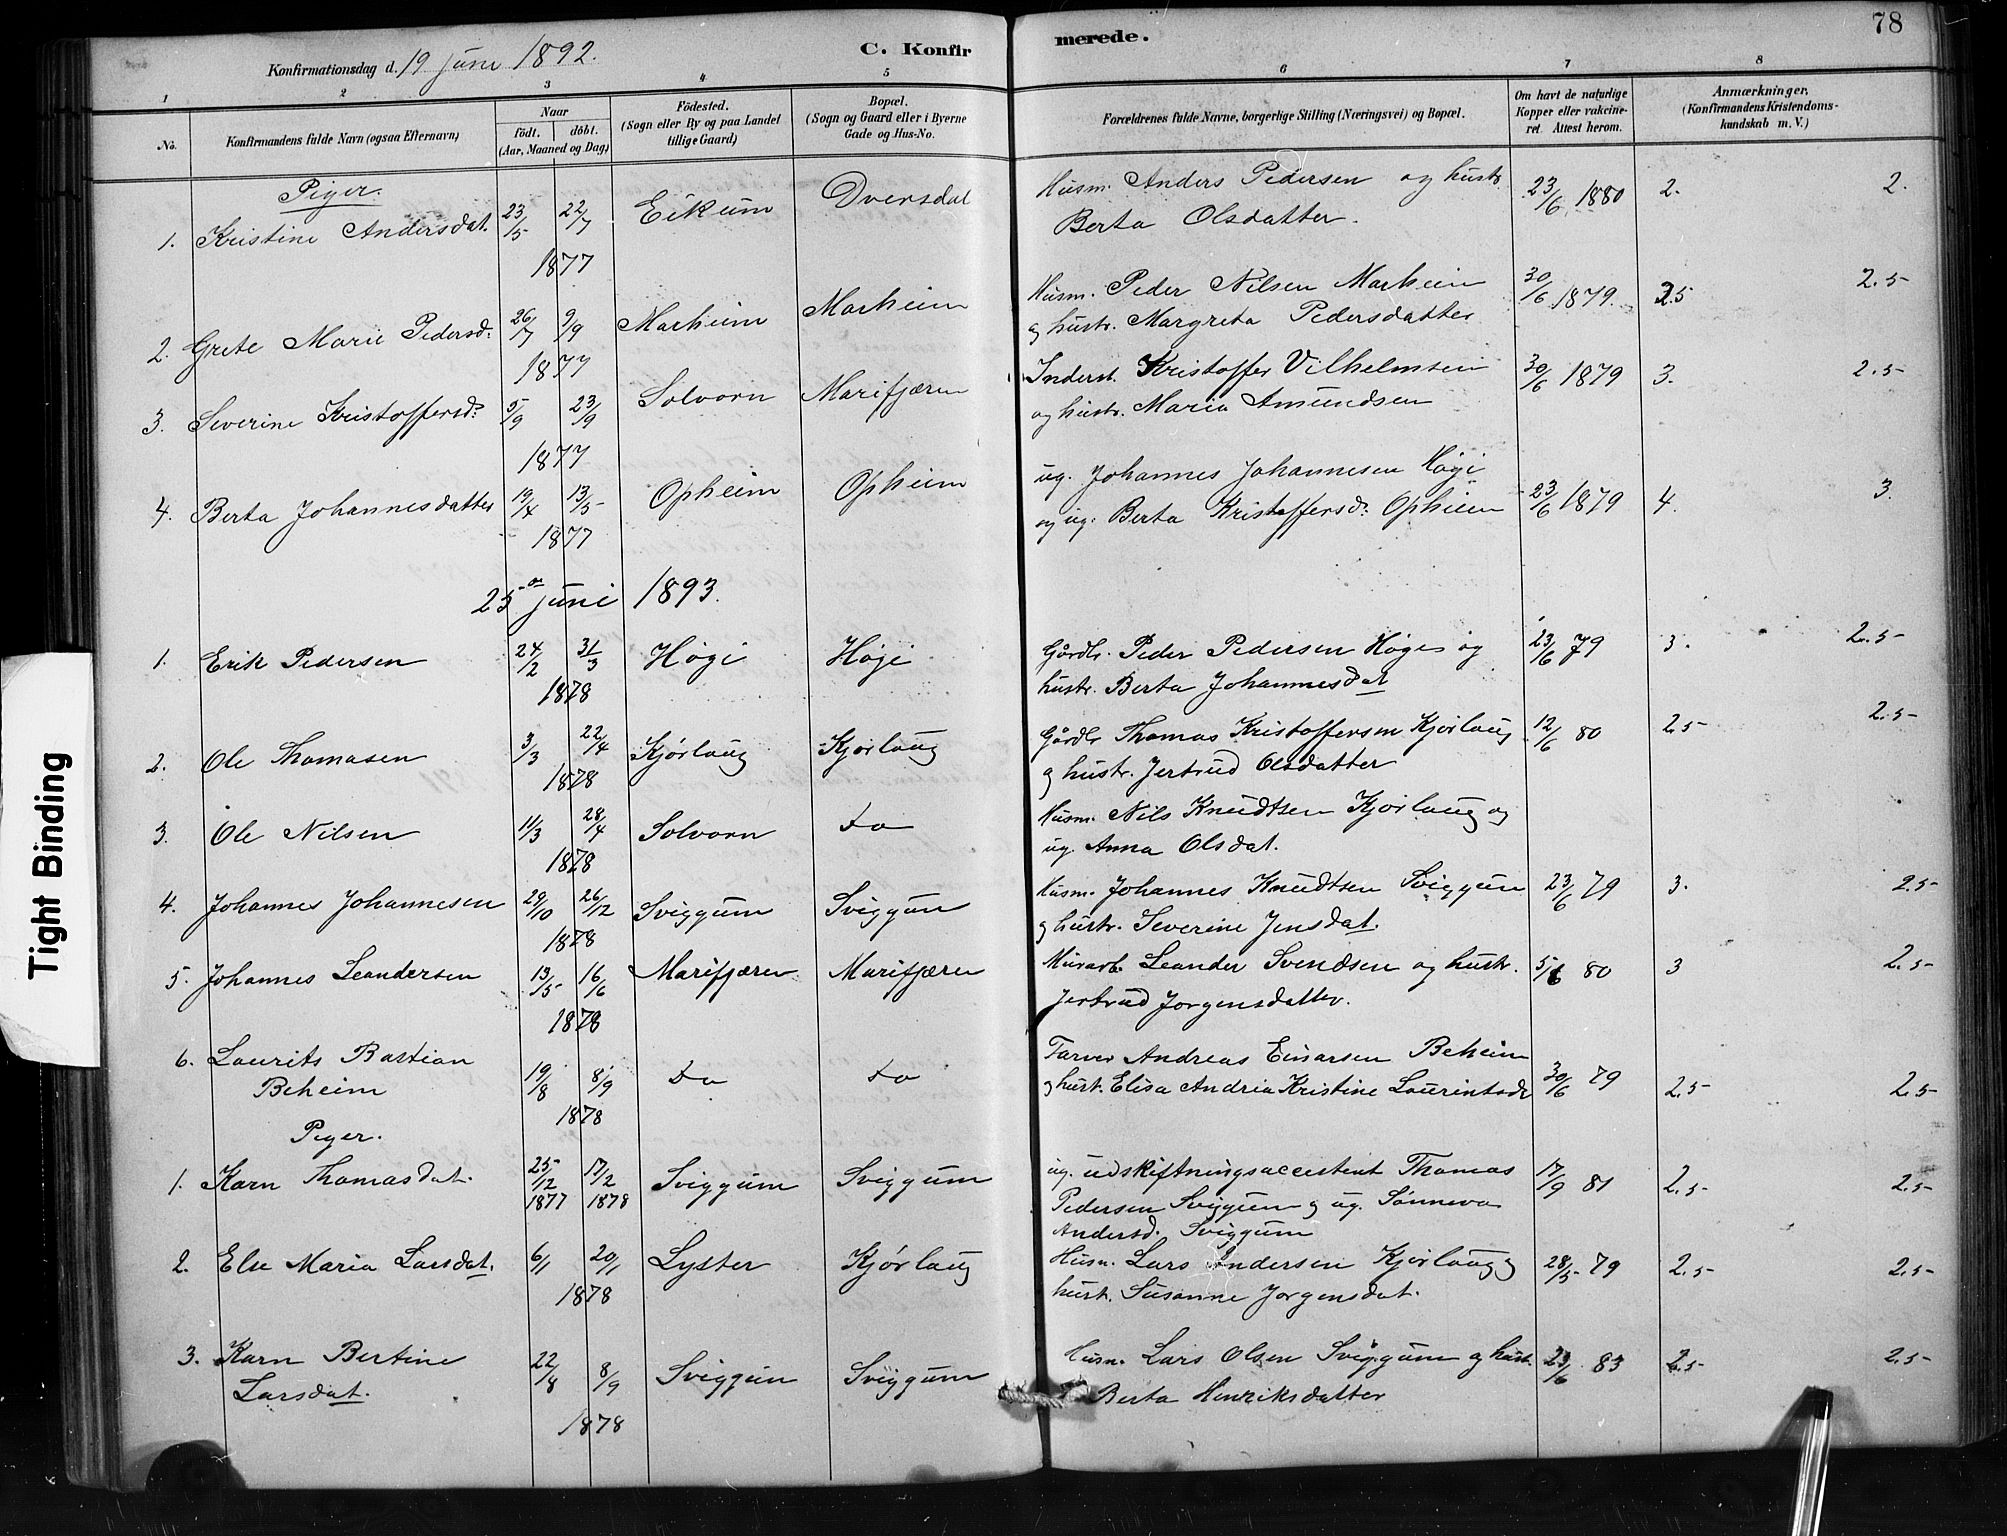 78
Konfirmationsdag d. 19 juni 1892.
C. Konfirmerede.
1 2 3 4 5 6 7 8
No.
Konfirmandens fulde Navn (ogsaa Efternavn)
Naar
födt. döbt.
(Aar, Maaned og Dag)
Födested.
(Sogn eller By og paa Landet
tillige Gaard)
Bopæl.
(Sogn og Gaard eller i Byerne
Gade og Hus-No.
Forældrenes fulde Navne, borgerlige Stilling (Næringsvei) og Bopæl.
Om havt de naturlige
Kopper eller vakcine-
ret. Attest herom.
Anmærkninger,
(Konfirmandens Kristendoms-
kundskab m. V.)
Piger.
1. Kristine Andersdat. 23/5 22/7 1877 Eikum Dversdal Husm. Anders Pedersen og hustr. 23/6 1880 2. 2.
Berta Olsdatter.
2. Grete Marie Pedersd: 26/7 9/9 1877 Marheim Marheim Husm. Peder Nilsen Marheim 30/6 1879. 2.5 2.5
og hustr. Margreta Pedersdatter
3. Severine Kristoffersd: 5/9 23/9 1877 Solvorn Marifjæren Inderst. Kristoffer Vilhelmsen 30/6 1879 3. 2.5
og hustr. Maria Amundsen
4. Berta Johannesdatter 19/4 13/5 1877 Opheim Opheim ug. Johannes Johannesen Høgi 23/6 1879 4. 3.
og ug. Berta Kristoffersd: Opheim
25de juni 1893.
1. Erik Pedersen 24/2 31/3 1878 Høgi Høgi Gårdbr. Peder Pedersen Høgi og 23/6 79 3. 2.5
hustr. Berta Johannesdat
2. Ole Thomasen 3/3 22/4 1878 Kjørlaug Kjørlaug Gårdbr Thomas Kristoffersen Kjørlaug 12/6 80 2.5 2.5
og hustr. Jertrud Olsdatter
3. Ole Nilsen 11/3 28/4 1878 Solvorn do Husm. Nils Knudtsen Kjørlaug og
ug. Anna Olsdat.
4. Johannes Johannesen 29/10 26/12 1878 Sviggum Sviggum Husm. Johannes Knudtsen Sviggum 23/6 79 3. 2.5
og hustr. Severine Jensdat.
5. Johannes Leandersen 13/5 16/6 1878 Marifjæren Marifjæren Murarb. Leander Svendsen og hustr. 5/6 80 3 2.5
Jertrud Jørgensdatter.
6. Laurits Bastian 19/8 8/9 1878 do do Farver Andreas Einarsen Beheim 30/6 79 2.5 2.5
Beheim og hust. Elisa Andria Kristine Laurintsdr
Piger.
1. Karn Thomasdat. 25/12 1877 17/2 1878 Sviggum Sviggum ug. udskiftningsaccestent Thomas 17/9 81 2.5 2.5
Pedersen Sviggum og ug. Sønneva
Andersd. Sviggum
2. Else Maria Larsdat. 6/1 20/1 1878 Lyster Kjørlaug Husm. Lars Andersen Kjørlaug og 28/5 79 2.5 2.5
hust. Susanne Jørgensdat.
3. Karn Bertine 22/8 8/9 1878 Sviggum Sviggum Husm. Lars Olsen Sviggum og hust. 23/6 83 2.5 2.5
Larsdat. Berta Henriksdatter
Tight Binding